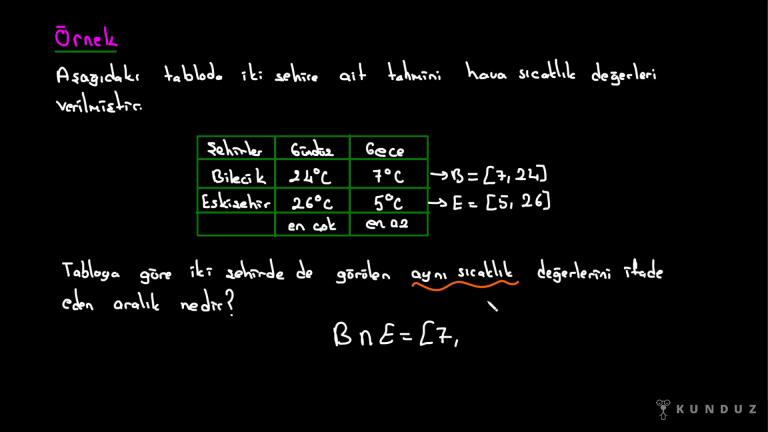 Örnek
Aşağıdaki tabloda iki şehire ait tahmini hava sıcaklık değerleri
verilmiştir.
Şehirler Gündüz Gece
Bilecik 24°C 7°C → B = [7, 24]
Eskişehir 26°C 5°C → E = [5, 26]
en çok en az
Tabloya göre iki şehirde de görülen aynı sıcaklık değerlerini ifade
eden aralık nedir?
B ∩ E = [7,
KUNDUZ